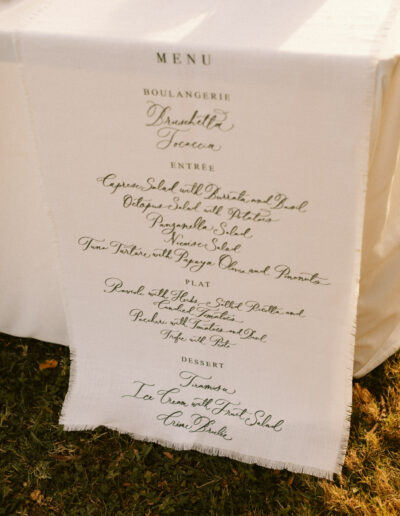 MENU
BOULANGERIE
Bruschetta
Focaccia
ENTRÉE
Caprese Salad with Burrata and Basil
Octopus Salad with Potatoes
Panzanella Salad
Nicoise Salad
Tuna Tartare with Papaya Olives and Peanuts
PLAT
Ravioli with Herbs, Salted Ricotta and
Candied Tomatoes
Paccheri with Tomatoes and Basil
Trofie with Pesto
DESSERT
Tiramisu
Ice Cream with Fruit Salad
Crème Brulée